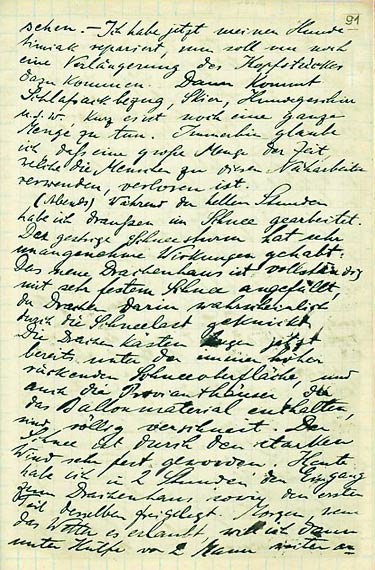 91
sehen. – Ich habe jetzt meinen Hunde-
timiak repariert, nun soll nur noch
eine Verlängerung des Kopfstückes
dazu kommen. Dann kommt
Schlafsackbezug, Skier, Hundegeschirr
u.s.w. Kurz es ist noch eine ganze
Menge zu tun. Immerhin glaube
ich daß eine große Menge der Zeit,
welche die Menschen zu diesen Näharbeiten
verwenden, verloren ist.
(Abends) Während der hellen Stunden
habe ich draußen im Schnee gearbeitet.
Der gestrige Schneesturm hat sehr
unangenehme Wirkungen gehabt:
Das neue Drachenhaus ist vollständig
mit sehr festem Schnee angefüllt,
die Drachen darin wahrscheinlich
durch die Schneelast geknickt.
Die Drachenkasten liegen jetzt
bereits unter der immer höher
rückenden Schneeoberfläche, und
auch die Provianthäuser, die
das Ballonmaterial enthalten,
sind völlig verschneit. Der
Schnee ist durch den starken
Wind sehr fest geworden. Heute
habe ich in 2 Stunden den Eingang
zum Drachenhaus, sowie den ersten
Teil desselben freigelegt. Morgen, wenn
das Wetter es erlaubt, will ich dann
unter Hülfe von 2 Mann weiter an